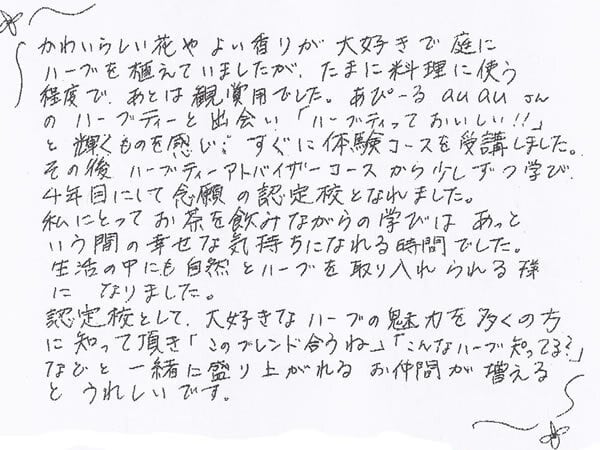 かわいらしい花や よい香りが 大好きで 庭に
ハーブを 植えていましたが、たまに料理に使う
程度で、あとは 観賞用でした。あぴーる auau さん
の ハーブティーと出会い「ハーブティっておいしい!!」
と 輝くものを感じ、すぐに 体験コースを受講しました。
その後 ハーブティーアドバイザーコース から少しずつ学び、
4年目にして 念願の認定校となれました。
私にとって お茶を飲みながらの学びは あっと
いう間の幸せな気持ちになれる時間でした。
生活の中にも自然とハーブを取り入れられる様
に なりました。
認定校として、大好きなハーブの魅力を多くの方
に 知って頂き「このブレンド合うね」「こんなハーブ知ってる?」
などと 一緒に盛り上がれる お仲間が 増える
と うれしいです。